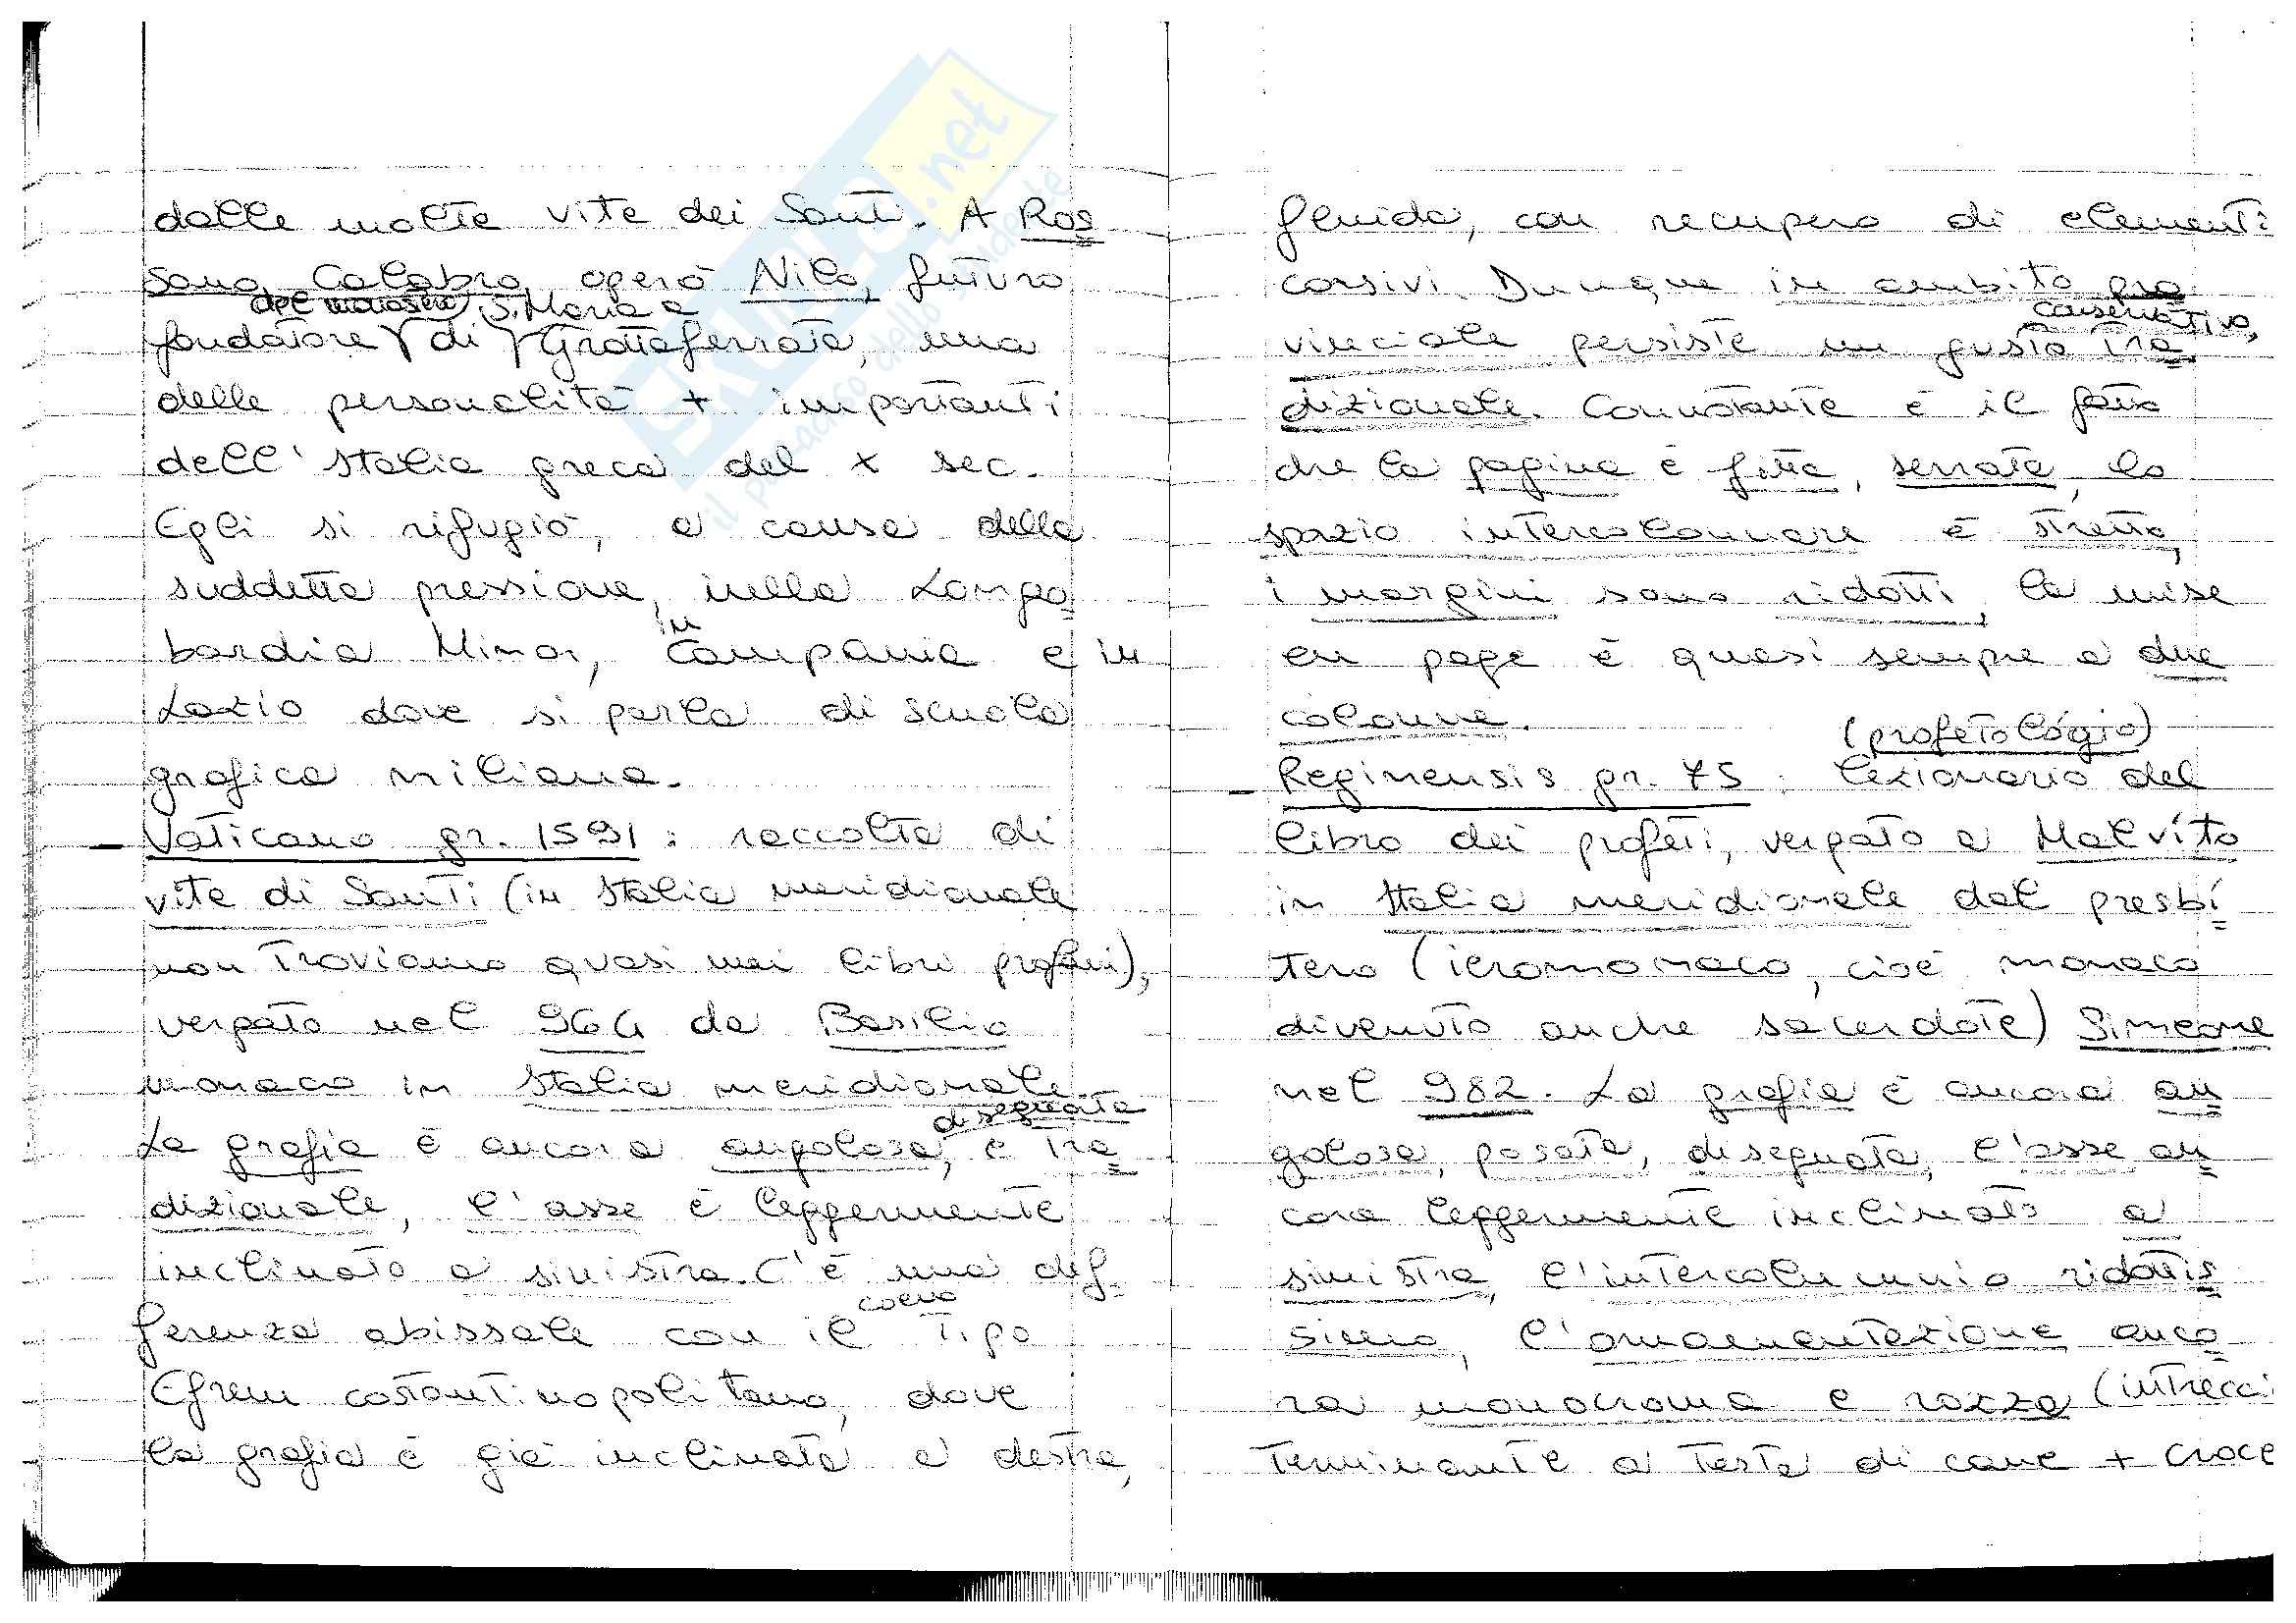 dalle molte vite dei Santi. A Ros
sano Calabro operò Nilo, futuro
del monastero S. Maria a
fondatore di Grottaferrata, una
delle personalità + importanti
dell'Italia greca del X sec.
Egli si rifugiò, a causa della
suddetta pressione, nella Longo
bardia Minor, in Campania e in
Lazio dove si parla di scuola
grafica niliana.
- Vaticano gr. 1591: raccolta di
vite di Santi (in Italia meridionale
non troviamo quasi mai libri profani),
vergato nel 964 da Basilio
monaco in Italia meridionale.
disegnata
La grafia è ancora angolosa, e tra
dizionale, l'asse è leggermente
inclinato a sinistra. C'è una dif-
coevo
ferenza abissale con il tipo
Efrem costantinopolitano, dove
la grafia è già inclinata a destra,
fluida, con recupero di elementi
corsivi. Dunque in ambito pro
conservativo,
vinciale persiste un gusto tra
dizionale. Connotante è il fatto
che la pagina è fitta, serrata, lo
spazio intercolonnare è stretto,
i margini sono ridotti, la mise
en page è quasi sempre a due
colonne.
(profetológio)
- Reginensis gr. 75: lezionario del
libro dei profeti, vergato a Malvito
in Italia meridionale dal presbí
tero (ieromonaco, cioè monaco
divenuto anche sacerdote) Simeone
nel 982. La grafia è ancora an
golosa, posata, disegnata, l'asse an
cora leggermente inclinato a
sinistra, l'intercolumnio ridottis
simo, l'ornamentazione anco
ra monocroma e rozza (intrecci
terminante a testa di cane + croce
SKUOLA.net
il paradiso dello studente